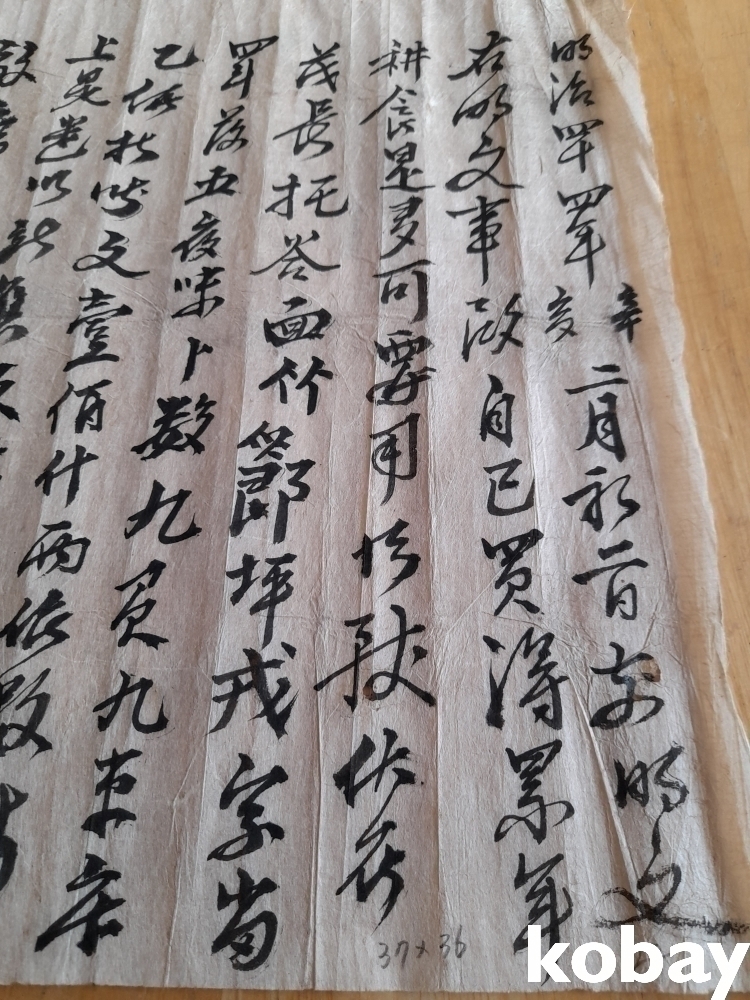 明治四十四年辛亥二月初二日前明文
右明文事段自己買得累年
耕食是多可要用所致伏在
茂長托谷面竹鄒坪戎字畓
四斗落五夜味卜數九負九束庫
乙價折錢文壹佰什兩依數
上是遣以新
37×36
kobay